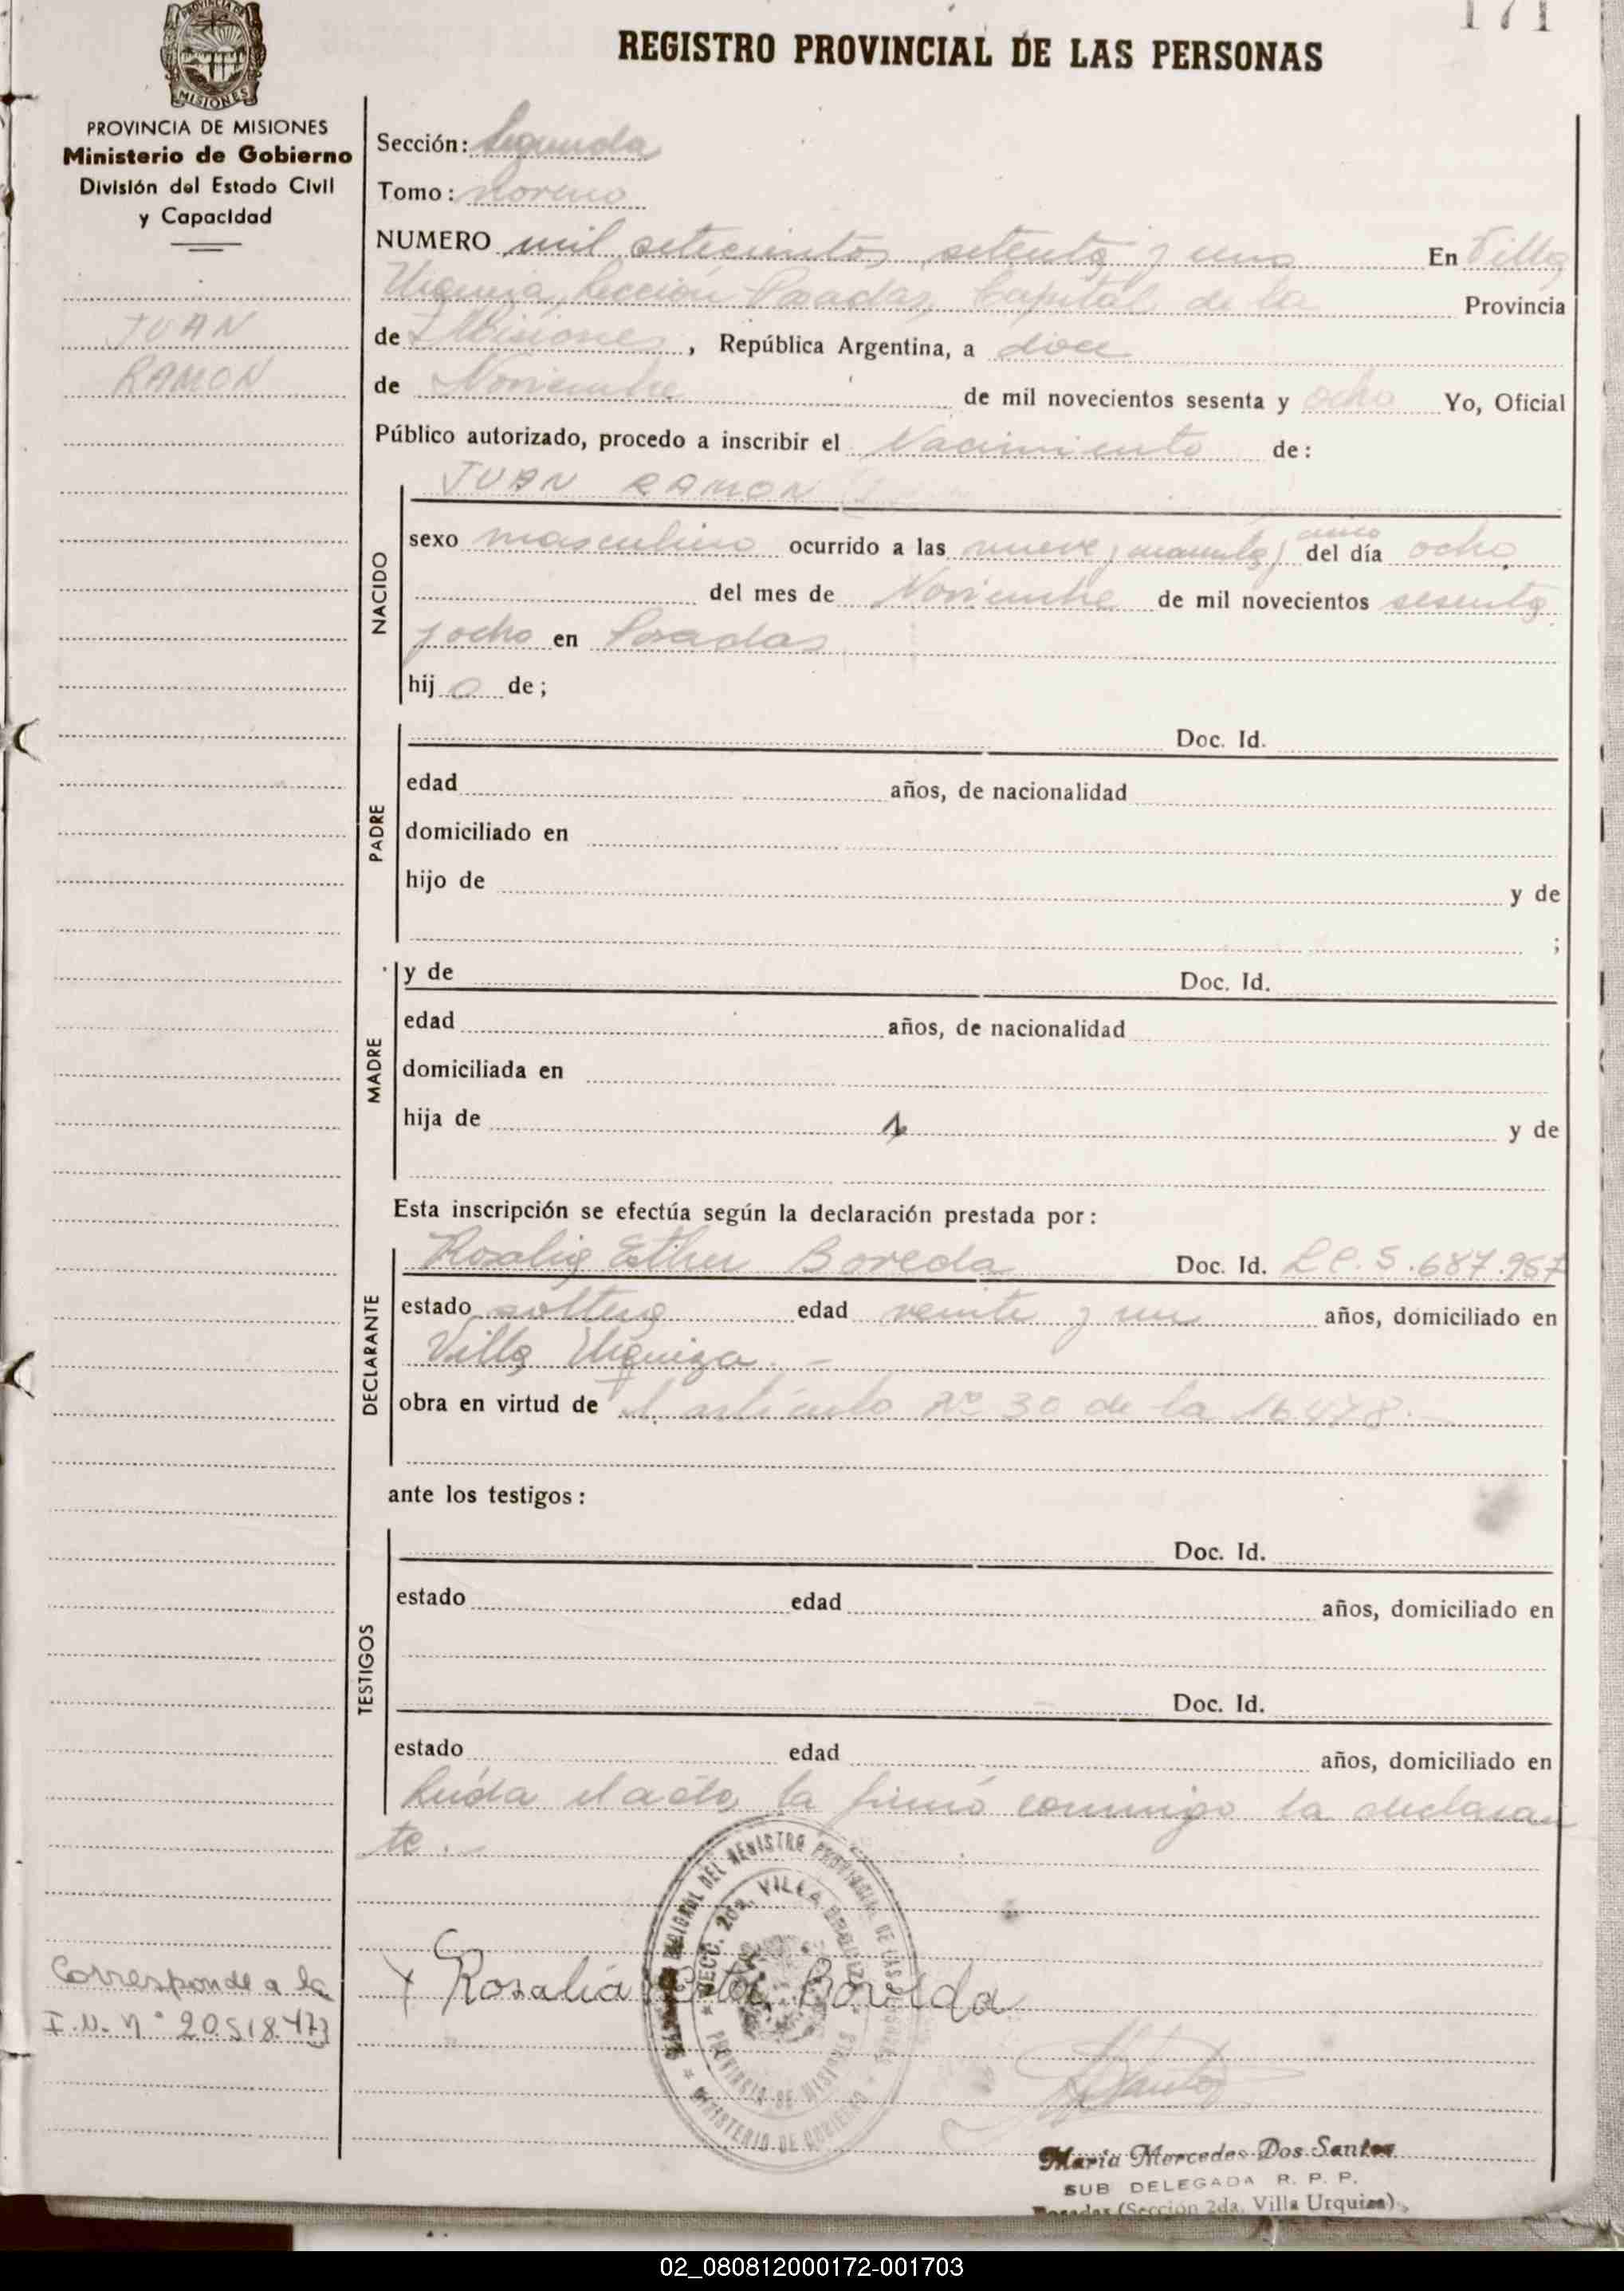 171
REGISTRO PROVINCIAL DE LAS PERSONAS
PROVINCIA DE
MISIONES
PROVINCIA DE MISIONES
Ministerio de Gobierno
División del Estado Civil
y Capacidad
JUAN
RAMON
Sección: Segunda
Tomo: Noveno
NUMERO mil setecientos setenta y uno En Villa
Urquiza, Sección Posadas, Capital de la Provincia
de Misiones, República Argentina, a doce
de Noviembre de mil novecientos sesenta y ocho Yo, Oficial
Público autorizado, procedo a inscribir el Nacimiento de:
JUAN RAMON
NACIDO
sexo masculino ocurrido a las nueve y cuarenta y cinco del día ocho
del mes de Noviembre de mil novecientos sesenta
y ocho en Posadas
hij o de;
PADRE
Doc. Id.
edad años, de nacionalidad
domiciliado en
hijo de y de
;
MADRE
y de Doc. Id.
edad años, de nacionalidad
domiciliada en
hija de y de
Esta inscripción se efectúa según la declaración prestada por:
DECLARANTE
Rosalia Esther Boveda Doc. Id. L.C. 5.687.957
estado soltera edad veinte y un años, domiciliado en
Villa Urquiza. -
obra en virtud de el artículo Nº 30 de la 16.478.-
ante los testigos:
TESTIGOS
Doc. Id.
estado edad años, domiciliado en
Doc. Id.
estado edad años, domiciliado en
Leída el acta, la firmó conmigo la declaran
te.-
REGIONAL DEL REGISTRO PROVINCIAL DE LAS PERSONAS
SECC. 2da. VILLA URQUIZA
PROVINCIA DE MISIONES
MINISTERIO DE GOBIERNO
Corresponde a la
I.N. Nº 20518.473
Rosalía Ester Boveda
Maria Mercedes Dos Santos
SUB DELEGADA R. P. P.
Posadas (Sección 2da. Villa Urquiza)
02_080812000172-001703